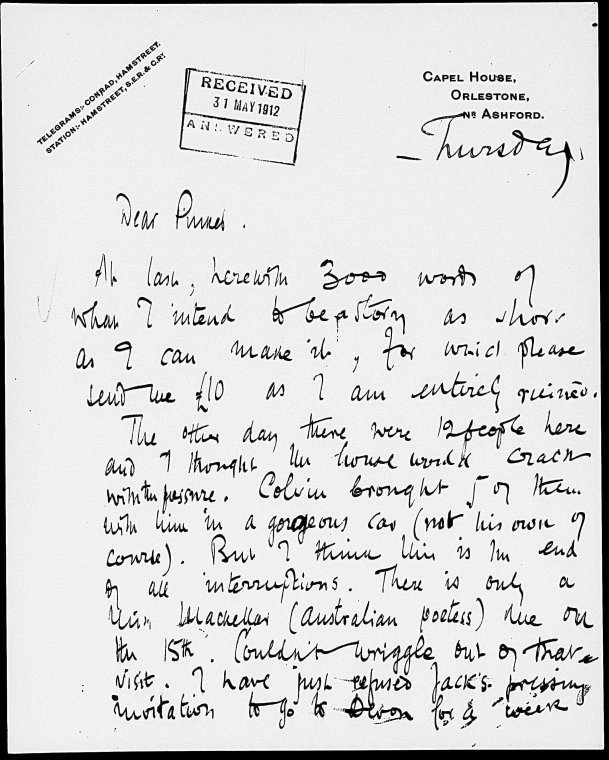 TELEGRAMS:- CONRAD, HAMSTREET.
STATION:- HAMSTREET, S.E.R. & C.RY.
RECEIVED
31 MAY 1912
ANSWERED
CAPEL HOUSE,
ORLESTONE,
NR ASHFORD.
Thursday
Dear Pinker.
At last, herewith 3000 words of
what I intend to be a story as short
as I can make it, for which please
send me £10 as I am entirely ruined.
The other day there were 12 people here
and I thought the house would crack
with the pressure. Colvin brought 5 of them
with him in a gorgeous car (not his own of
course). But I think this is the end
of all interruptions. There is only a
Miss Mackellar (Australian poetess) due on
the 15th. Couldn't wriggle out of that
visit. I have just refused Jack's pressing
invitation to go to Devon for a week